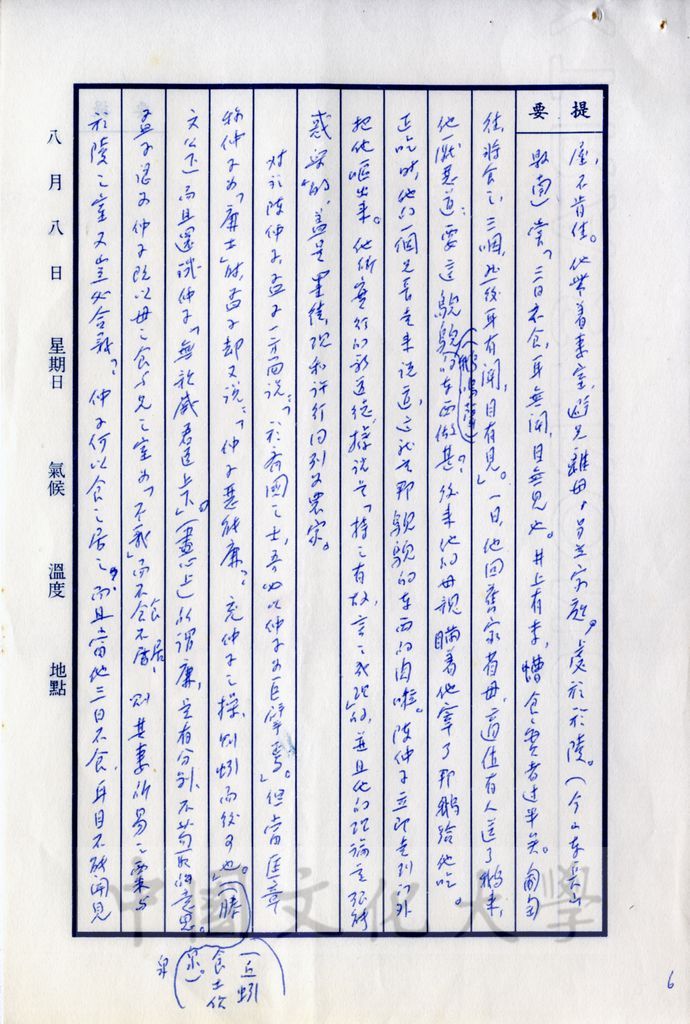 提要
屋，不肯住。他帶着妻室，避兄離母，另立家庭，處於於陵。(今山東長山
縣南)嘗「三日不食，耳無聞，目無見也。井上有李，螬食之實者過半矣。匍匐
往將食之，三咽，然後耳有聞，目有見」。一日，他回舊家省母，適值有人送了鵝來，
他一蹙道：要這鶃鶃的東西做甚？後來他的母親瞞着他宰了那鵝給他吃。
(鵝鳴聲)
正吃時，他的一個兄長走來說道，這就是那鶃鶃的東西的肉啦。陳仲子立即走到門外
把他嘔出來。他所實行的新道德，據說是「持之有故，言之成理」的，並且他的理論意張能
惑眾的，蓋是墨徒，現和許行同列又農家。
對於陳仲子，孟子一方面說：「於齊國之士，吾必以仲子為巨擘焉。」但當匡章
稱仲子為「廉士」時，孟子却又說：「仲子惡能廉？充仲子之操，則蚓而後可也」(滕
文公下)而且還譏仲子「無親戚君臣上下」(盡心上)所謂廉，是有分別，不苟取的意思。
孟子認為仲子既以母之食與兄之室為「不義」而不食不居，則其妻所易之粟與
於陵之室又豈必合義？仲子何以食之居之？而且當他三日不食，耳目不能聞見
(丘蚓
食土飲
泉)。
泉
八月八日 星期日 氣候 溫度 地點
6
中國文化大學